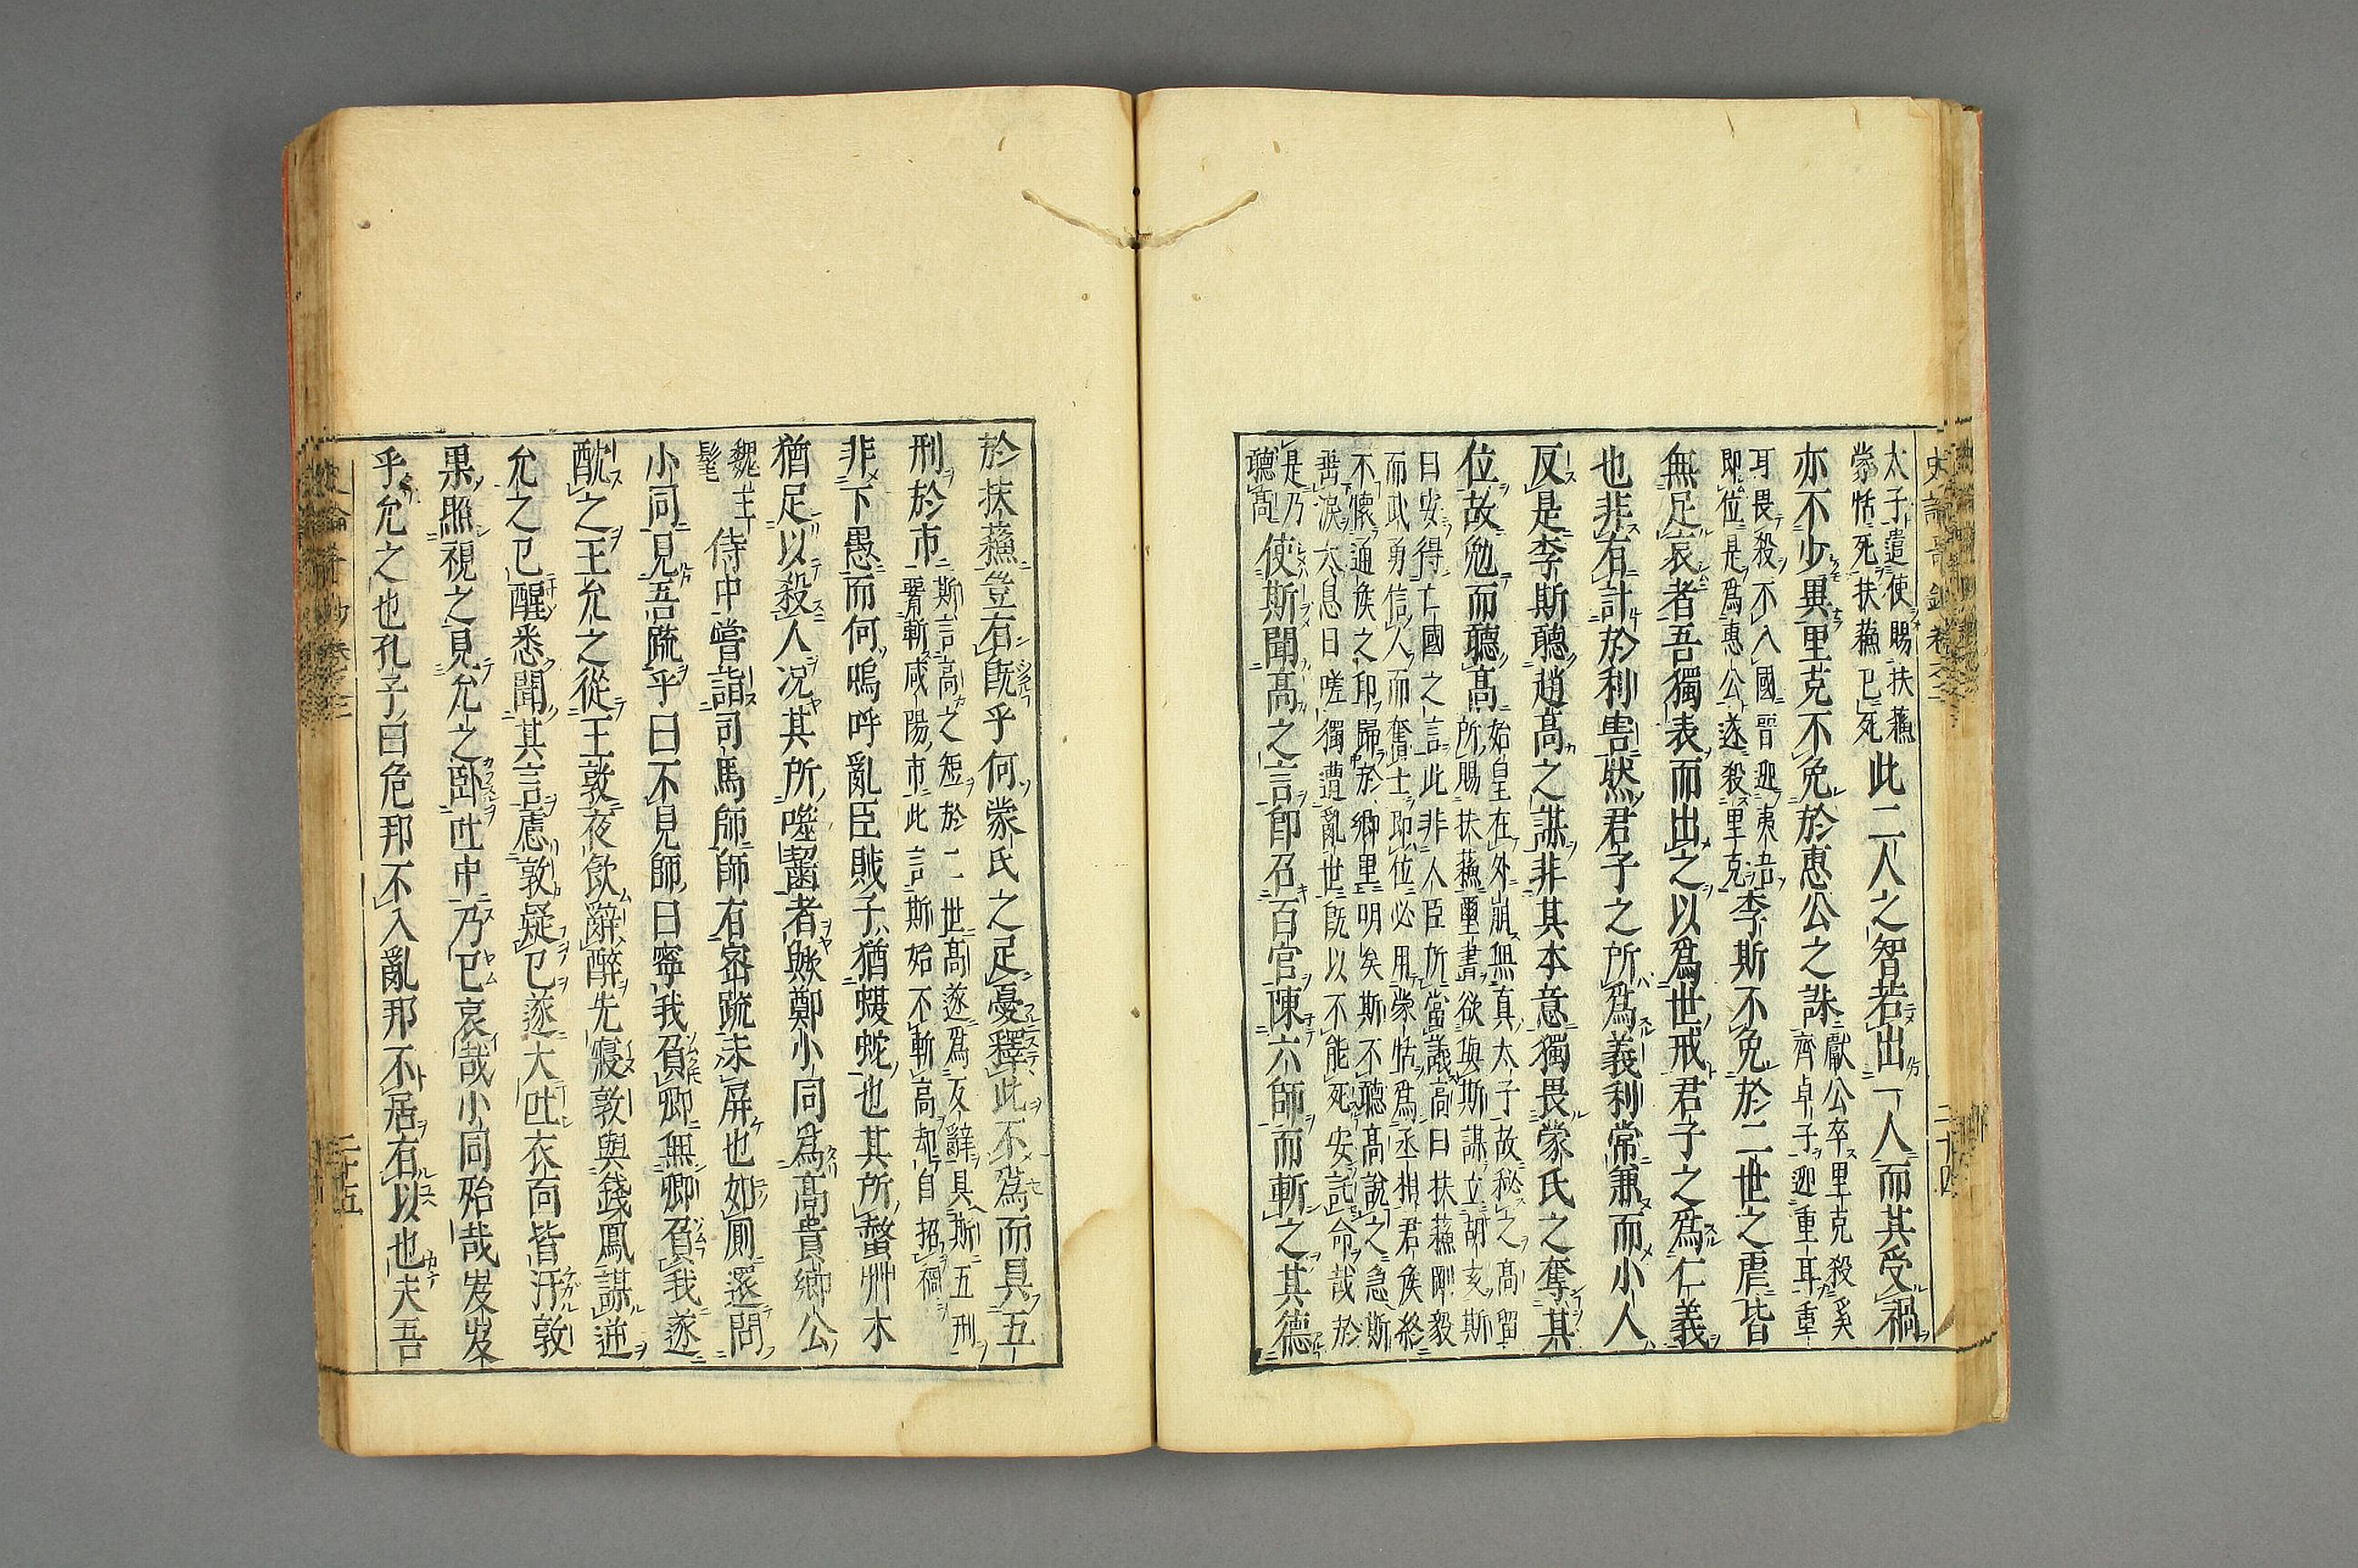 太子遣使賜扶蘇
蒙恬死扶蘇已死
此二人之智若出一人而其受禍
亦不少異里克不免於惠公之誅
獻公卒里克殺奚
齊卓子迎重耳重
耳畏殺不入國晋迎夷吾
即位是為惠公遂殺里克
李斯不免於二世之虐皆
無足哀者吾獨表而出之以為世戒君子之為仁義
也非有計於利害然君子之所為義利常兼而小人
反是李斯聽趙高之謀非其本意獨畏蒙氏之奪其
位故勉而聽高
始皇在外崩無真太子故秘之高留
所賜扶蘇璽書欲與斯謀立胡亥斯
曰安得亡國之言此非人臣所當議高曰扶蘇剛毅
而武勇信人而奮士即位必用蒙恬為丞相君侯終
不懷通侯之印歸於鄉里明矣斯不聽高說之急斯
垂淚太息曰嗟獨遭亂世既以不能死安託命哉於
是乃
聽高
使斯聞高之言即召百官陳六師而斬之其德
於扶蘇豈有既乎何蒙氏之足憂釋此不為而具五
刑於市
斯言高之短於二世高遂為反辭具斯五刑
要斬咸陽市此言斯始不斬高却自招禍
非下愚而何嗚呼亂臣賊子猶蝮蛇也其所螫艸木
猶足以殺人況其所噬齧者歟鄭小同為高貴鄉公
魏主
髦
侍中嘗詣司馬師師有密疏未屏也如厠還問
小同見吾疏乎曰不見師曰寧我負卿無卿負我遂
酖之王允之從王敦夜飲辭醉先寢敦與錢鳳謀逆
允之已醒悉聞其言慮敦疑已遂大吐衣面皆汙敦
果照視之見允之卧吐中乃已哀哉小同殆哉岌岌
乎允之也孔子曰危邦不入亂邦不居有以也夫吾
二十五